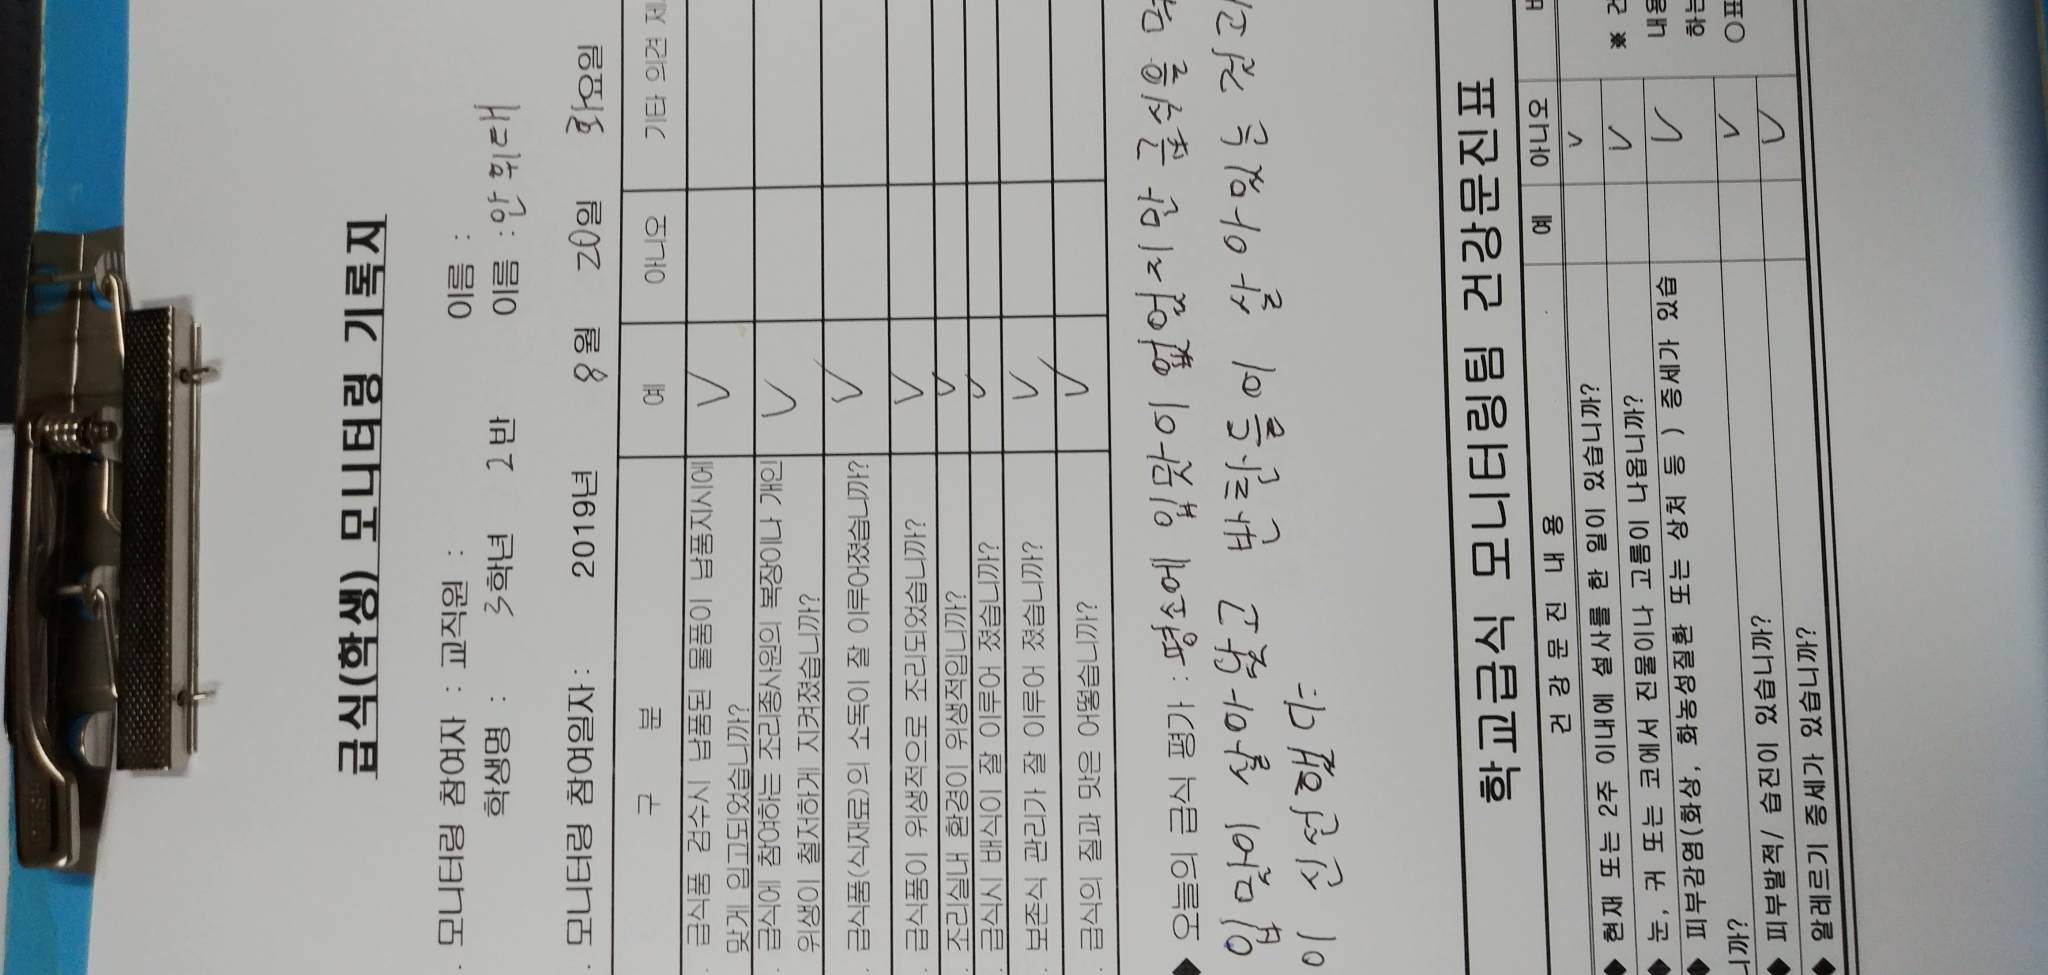 급식(학생) 모니터링 기록지
. 모니터링 참여자 : 교직원 : 이름 :
학생명 : 3학년 2반 이름 : 안휘대
. 모니터링 참여일자 : 2019년 8월 20일 화요일
구 분 예 아니오 기타 의견 제
. 급식품 검수시 납품된 물품이 납품지시에
맞게 입고되었습니까? V
. 급식에 참여하는 조리종사원의 복장이나 개인
위생이 철저하게 지켜졌습니까? V
. 급식품(식재료)의 소독이 잘 이루어졌습니까? V
. 급식품이 위생적으로 조리되었습니까? V
. 조리실내 환경이 위생적입니까? V
. 급식시 배식이 잘 이루어 졌습니까? V
. 보존식 관리가 잘 이루어 졌습니까? V
. 급식의 질과 맛은 어떻습니까? V
◆ 오늘의 급식 평가 : 평소에 입맛이 없었지만 분식을
입맛이 살아났고 반찬들이 살아있는
이 신선했다.
학교급식 모니터링팀 건강문진표
건 강 문 진 내 용 예 아니오
◆ 현재 또는 2주 이내에 설사를 한 일이 있습니까? V ※ 건
◆ 눈, 귀 또는 코에서 진물이나 고름이 나옵니까? V 내용
◆ 피부감염(화상, 화농성질환 또는 상처 등 ) 증세가 있습 V 하는
니까?
◆ 피부발적/ 습진이 있습니까? V ○표
◆ 알레르기 증세가 있습니까? V